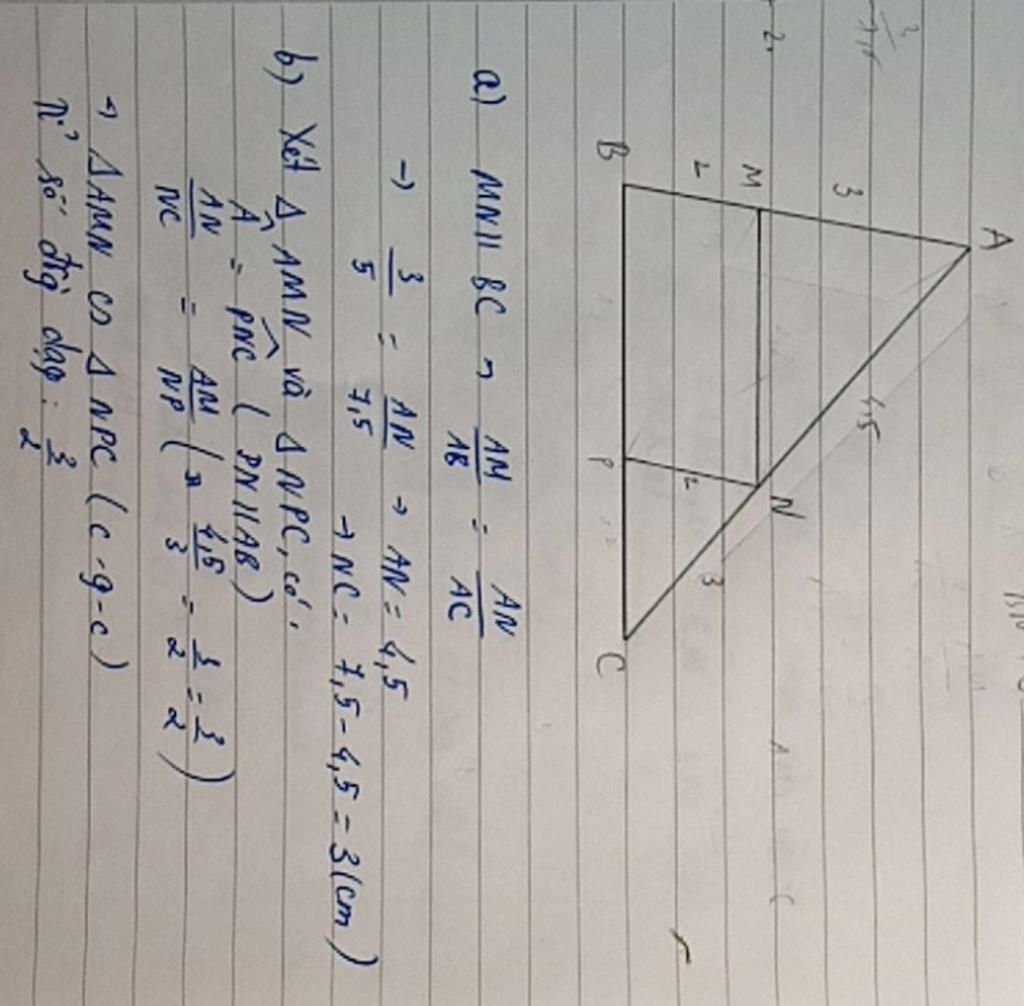 A
3
4,5
M
N
2
2
3
B
P
C
a) MN // BC → AM/AB = AN/AC
→ 3/5 = AN/7,5 → AN = 4,5
→ NC = 7,5 - 4,5 = 3 (cm)
b) Xét Δ AMN và Δ NPC, có:
Â = PNC ( PN // AB )
AN/NC = AM/NP ( 4,5/3 = 3/2 = 3/2 )
→ Δ AMN ∽ Δ NPC ( c - g - c )
số đồg dạg : 3/2